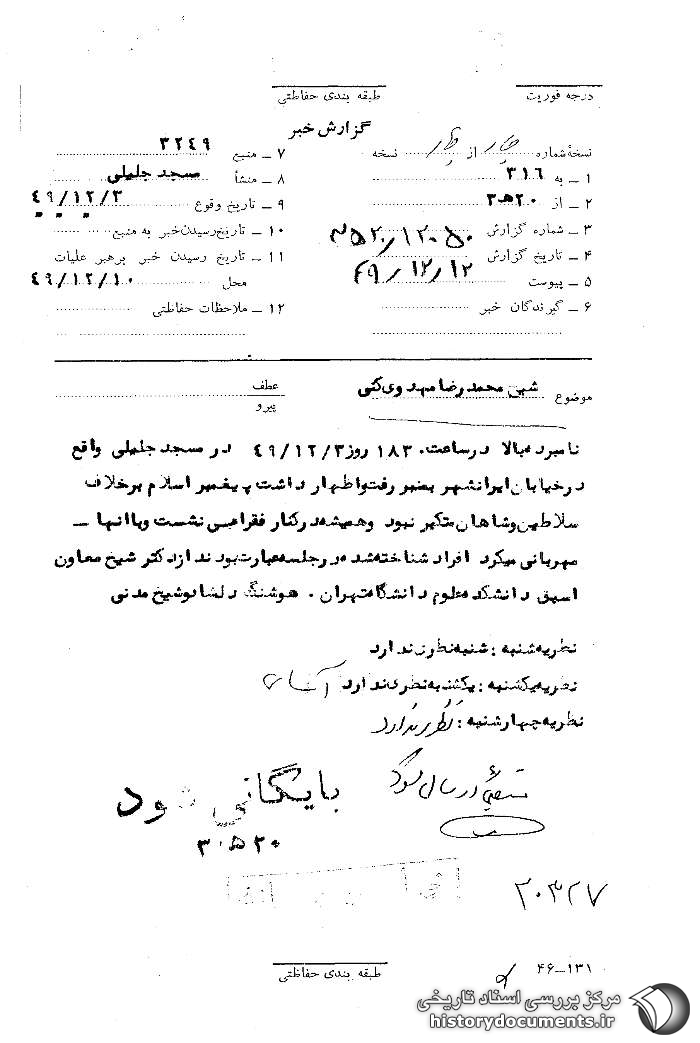 درجه فوریت
طبقه بندی حفاظتی
گزارش خبر
نسخهٔ شماره چهار از چهار نسخه
۱ ـ به ۳۱۶
۲ ـ از ۲۰ھ۳
۳ ـ شماره گزارش
۴ ـ تاریخ گزارش ۴۹/۱۲/۱۲
۵ ـ پیوست
۶ ـ گیرندگان خبر
۷ ـ منبع ۳۲۴۹
۸ ـ منشأ مسجد جلیلی
۹ ـ تاریخ وقوع ۴۹/۱۲/۳
۱۰ ـ تاریخ رسیدن خبر به منبع
۱۱ ـ تاریخ رسیدن خبر برهبر عملیات
محل ۴۹/۱۲/۱۰
۱۲ ـ ملاحظات حفاظتی
موضوع شیخ محمدرضا مهدوی کنی
عطف
پیرو
نامبرده بالا در ساعت ۱۸۳۰ روز ۴۹/۱۲/۳ در مسجد جلیلی واقع
در خیابان ایرانشهر بمنبر رفت و اظهار داشت پیغمبر اسلام برخلاف
سلاطین و شاهان متکبر نبود و همیشه در کنار فقرا می نشست و با انها ـ
مهربانی میکرد افراد شناخته شده در جلسه عبارت بودند از دکتر شیخ معاون
اسبق دانشکده علوم دانشگاه تهران . هوشنگ دلشاد و شیخ مدنی
نظریه شنبه : شنبه نظر ندارد
نظریه یکشنبه : یکشنبه نظری ندارد
نظریه چهارشنبه : نظری ندارد
بایگانی شود
۳۰۵۲۰
۲۰۳۲۷
طبقه بندی حفاظتی
۴۶-۱۳۱
مرکز بررسی اسناد تاریخی
historydocuments.ir